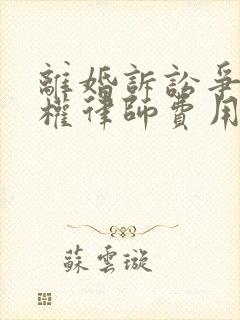 離婚訴訟爭
權律師費用
蘇雲璇